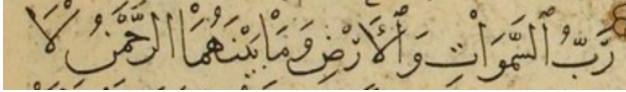 رَّبُّ ٱلسَّمَوَاتِ وَٱلْأَرْضِ وَمَا بَيْنَهُمَا الرَّحْمَنُ لَا